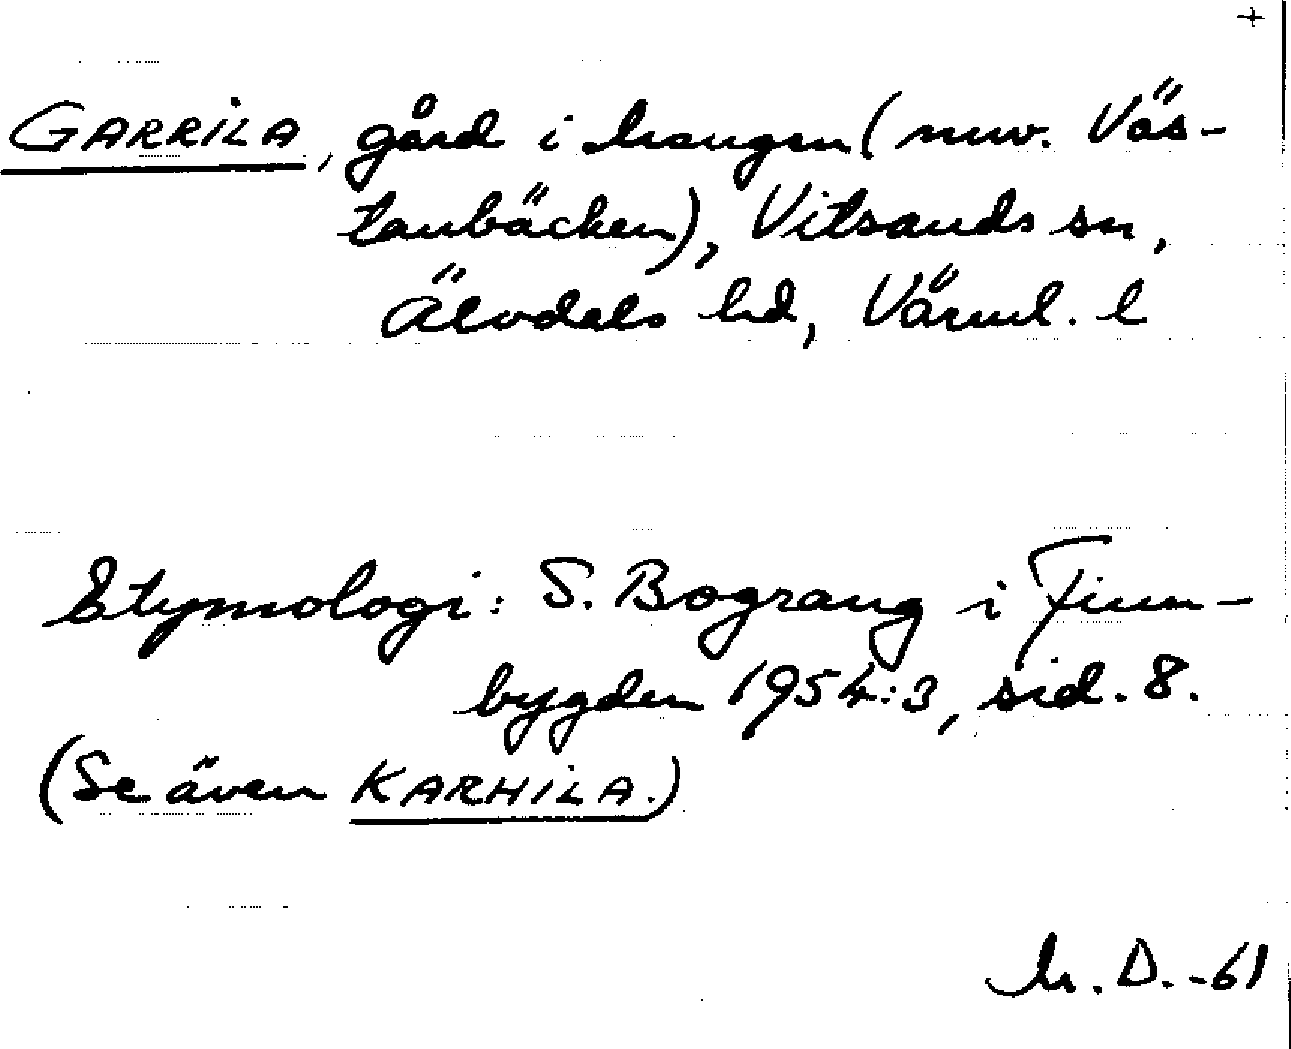 +
GARRILA, gård i Mangen (nuv. Väs-
tanbäcken), Vitsands sn,
Älvdals hd, Värml. l
Etymologi: S. Bograng i Finn-
bygden 1954:3, sid. 8.
(Se även KARHILA.)
M. D. -61